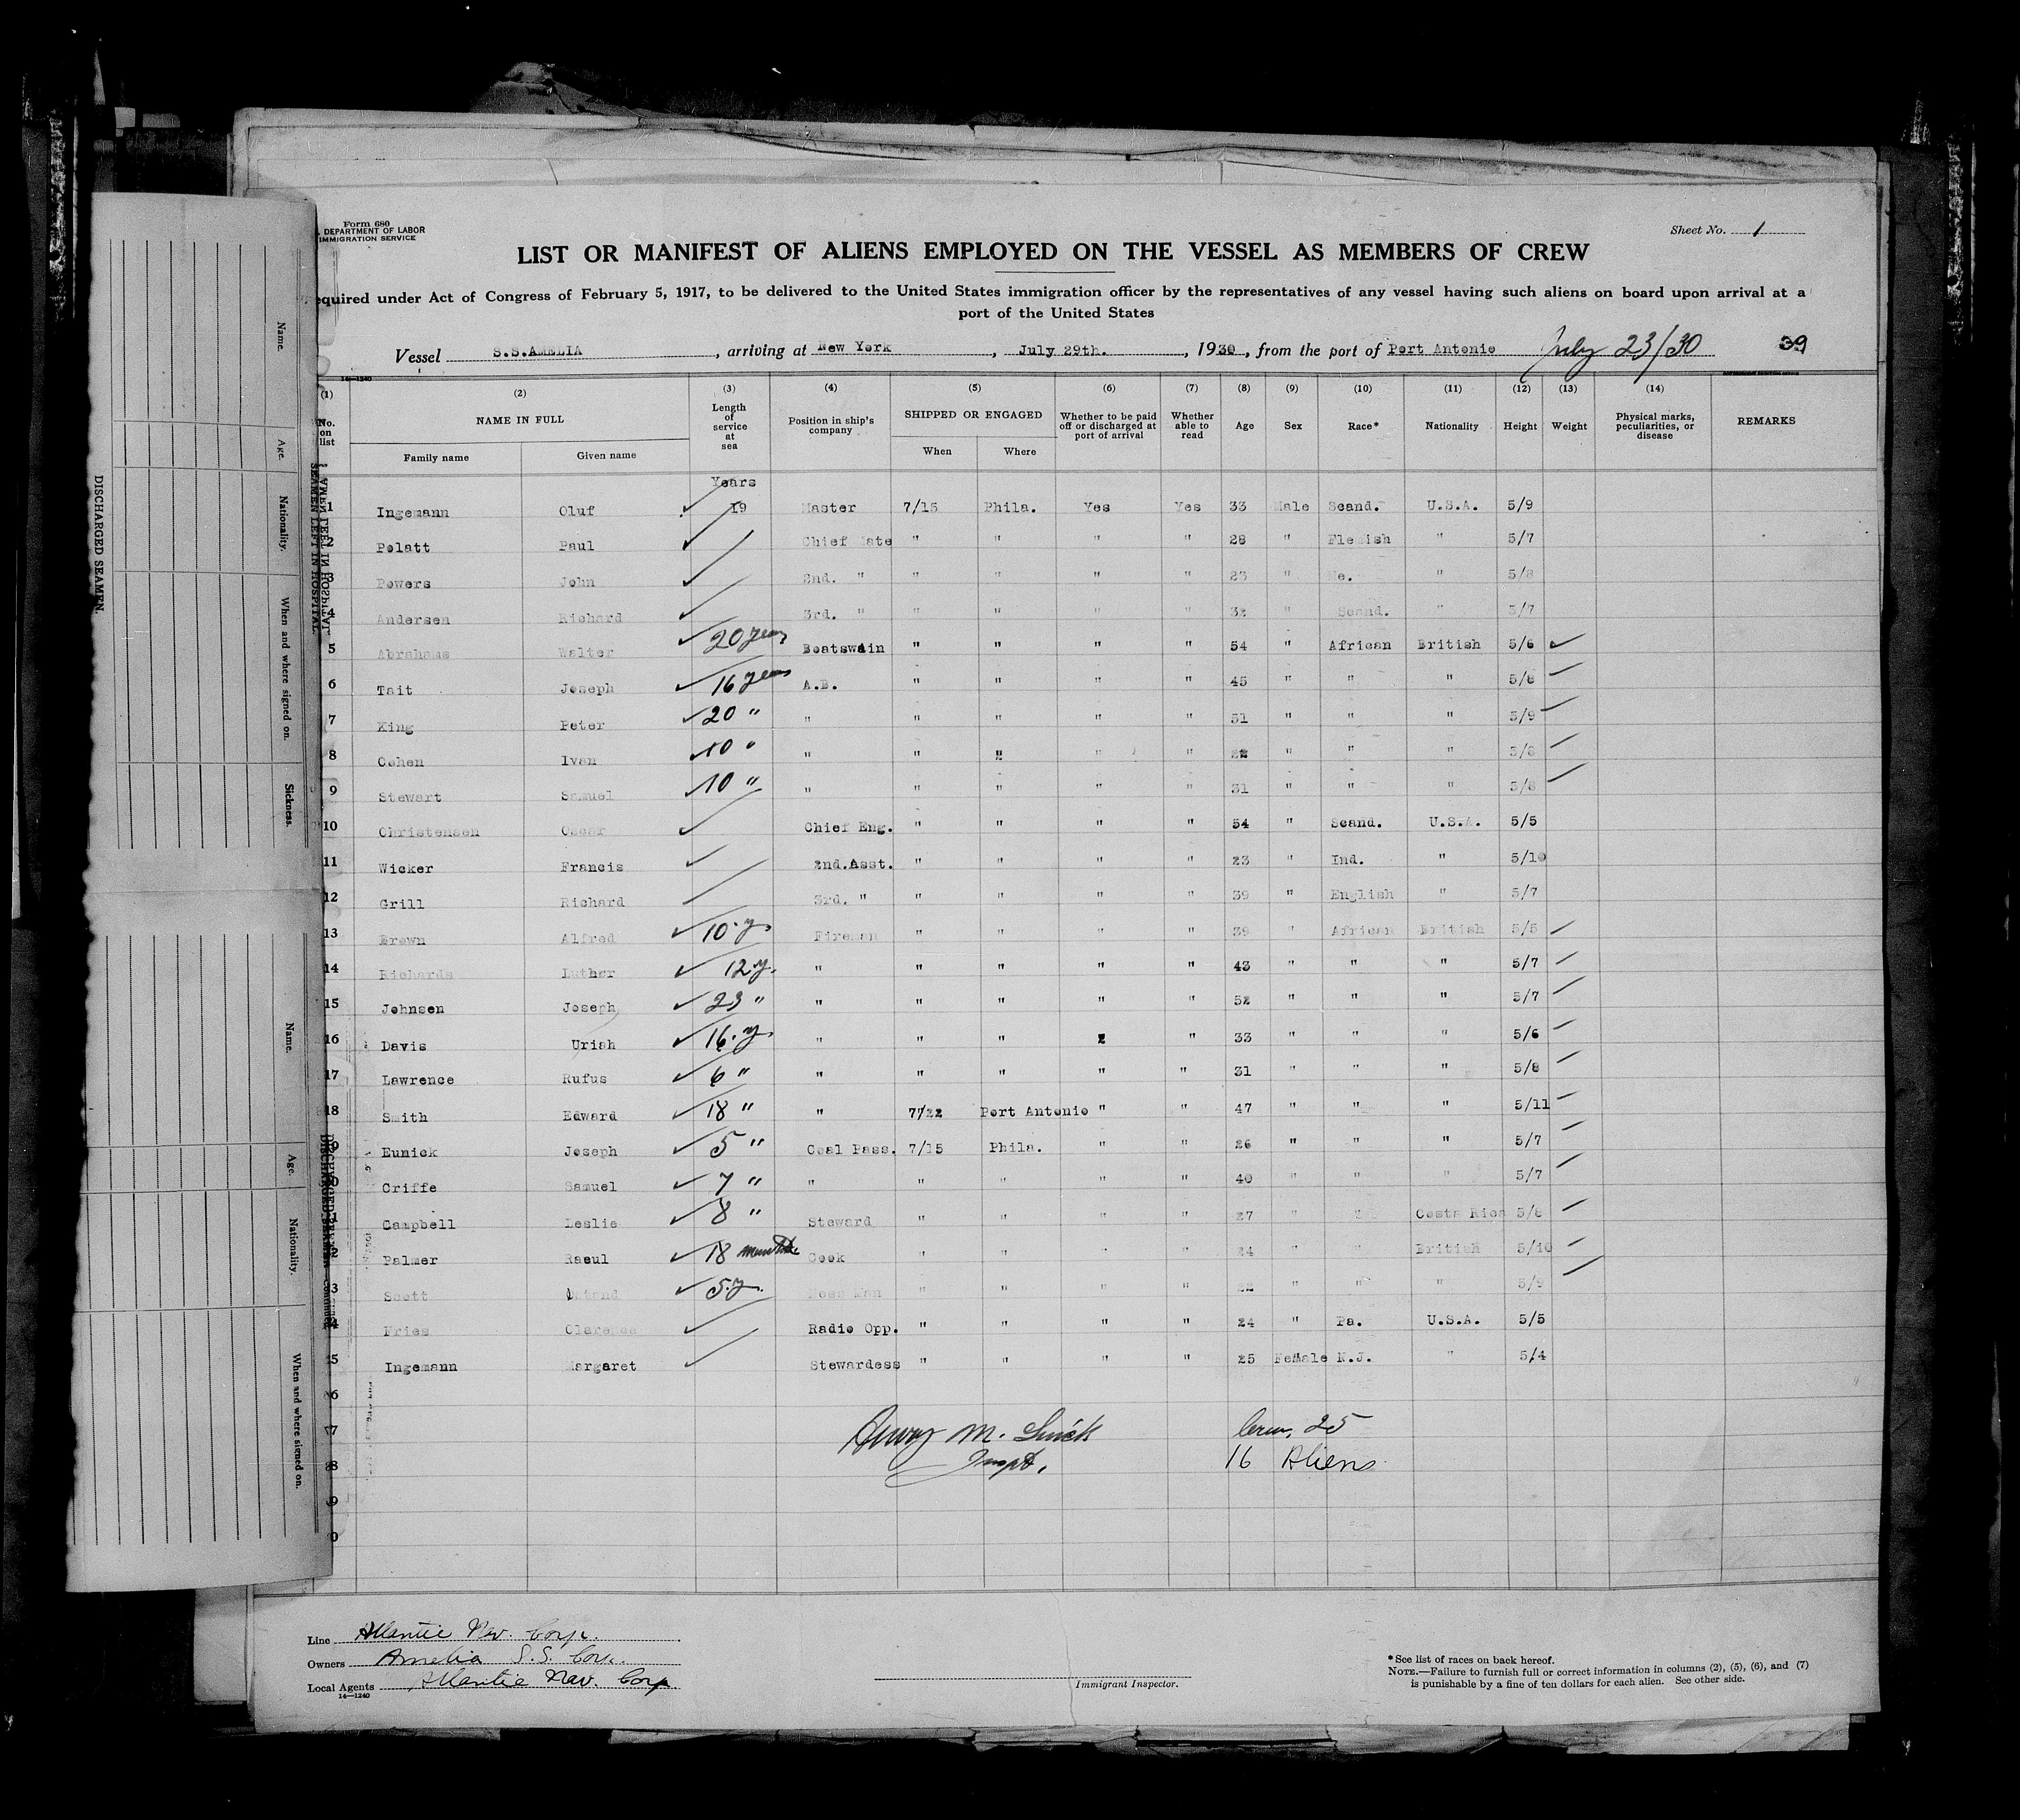 Form 680
DEPARTMENT OF LABOR
IMMIGRATION SERVICE
Sheet No. 1
LIST OR MANIFEST OF ALIENS EMPLOYED ON THE VESSEL AS MEMBERS OF CREW
equired under Act of Congress of February 5, 1917, to be delivered to the United States immigration officer by the representatives of any vessel having such aliens on board upon arrival at a
port of the United States
Vessel S.S.AMELIA , arriving at New York , July 29th. , 1930 , from the port of Port Antonio July 23/30 39
14—1240
(1) (2) (3) (4) (5) (6) (7) (8) (9) (10) (11) (12) (13) (14)
No. on list NAME IN FULL Family name Given name Length of service at sea Position in ship's company SHIPPED OR ENGAGED When Where Whether to be paid off or discharged at port of arrival Whether able to read Age Sex Race* Nationality Height Weight Physical marks, peculiarities, or disease REMARKS
Years
1 Ingemann Oluf 19 Master 7/15 Phila. Yes Yes 33 Male Scand. U.S.A. 5/9
2 Polatt Paul Chief Mate " " " " 28 " Flemish " 5/7
3 Powers John 2nd. " " " " " 23 " " 5/8
4 Andersen Richard 3rd. " " " " " 32 " Scand. " 5/7
5 Abrahams Walter 20 years Boatswain " " " " 54 " African British 5/6
6 Tait Joseph 16 years A.B. " " " " 45 " " " 5/8
7 King Peter 20 " " " " " " 51 " " " 5/9
8 Cohen Ivan 10 " " " " " " 22 " " " 5/8
9 Stewart Samuel 10 " " " " " " 31 " " " 5/8
10 Christensen Oscar Chief Eng. " " " " 54 " Scand. U.S.A. 5/5
11 Wicker Francis 2nd.Asst. " " " " 23 " Ind. " 5/10
12 Grill Richard 3rd. " " " " " 39 " English " 5/7
13 Brown Alfred 10 y. Fireman " " " " 39 " African British 5/5
14 Richards Luther 12 y. " " " " " 43 " " " 5/7
15 Johnsen Joseph 23 " " " " " " 52 " " " 5/7
16 Davis Uriah 16 y. " " " " " 33 " " " 5/6
17 Lawrence Rufus 6 " " " " " " 31 " " " 5/8
18 Smith Edward 18 " " 7/22 Port Antonio " " 47 " " " 5/11
9 Eunick Joseph 5 " Coal Pass. 7/15 Phila. " " 26 " " " 5/7
0 Criffe Samuel 7 " " " " " " 40 " " " 5/7
1 Campbell Leslie 8 " Steward " " " " 27 " " Costa Rica 5/8
2 Palmer Raoul 18 months Cook " " " " 24 " " British 5/10
3 Scott 5 y. Mess Man " " " " 22 " " " 5/9
4 Fries Clarence Radio Opp. " " " " 24 " Pa. U.S.A. 5/5
5 Ingemann Margaret Stewardess " " " " 25 Female N.J. " 5/4
6
7
8
9
0
Crew, 25
Inspt. 16 Aliens
Line Atlantic Nav. Corp.
Owners Amelia S.S. Corp.
Local Agents Atlantic Nav. Corp
14—1240
Immigrant Inspector.
*See list of races on back hereof.
NOTE.—Failure to furnish full or correct information in columns (2), (5), (6), and (7)
is punishable by a fine of ten dollars for each alien. See other side.
DISCHARGED SEAMEN.
Name.
Age.
Nationality.
When and where signed on.
Sickness.
SEAMEN LEFT IN HOSPITAL
Name.
Age.
Nationality.
When and where signed on.
DISCHARGED SEAMEN—Continued